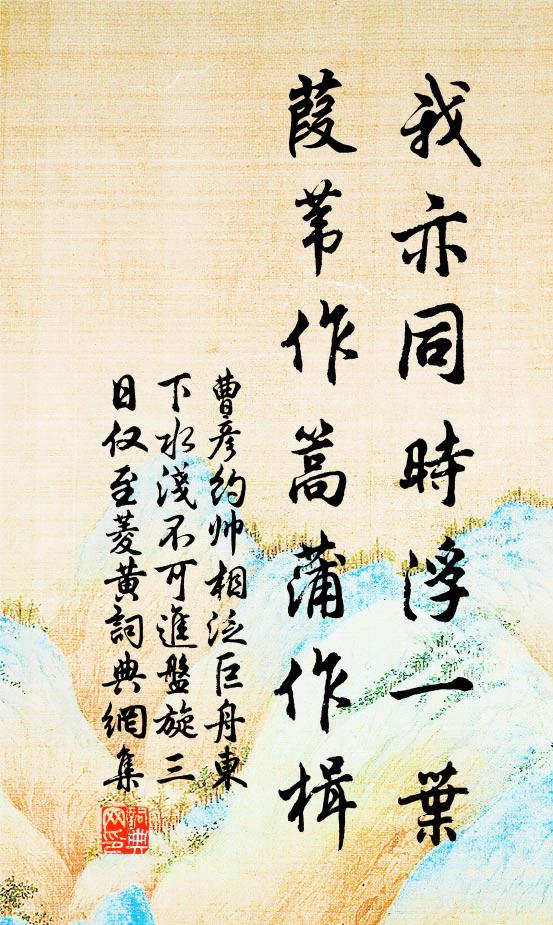 我亦同時浮一葉
葭苇作篙蒲作楫
曹彦约帅相泛巨舟東
下水淺不可進盤旋三
日仅至菱黄詞典網集
詞典
网印